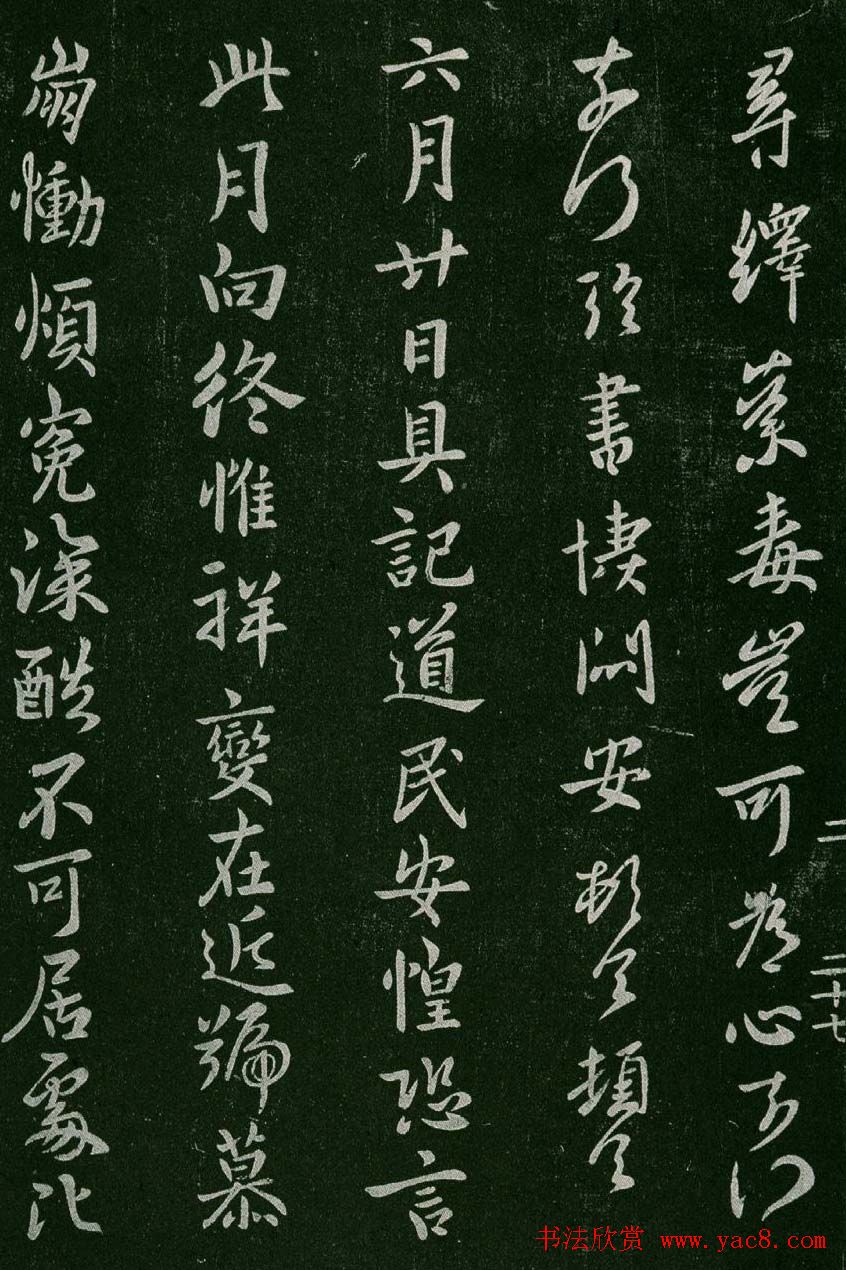 尋繹荼毒豈可為心奈何
奈何臨書悽悶安頓首頓首
六月廿日具記道民安惶恐言
此月向終惟祥變在近號慕
崩慟煩冤深酷不可居處比
二 二十七
书法欣赏 www.yac8.com